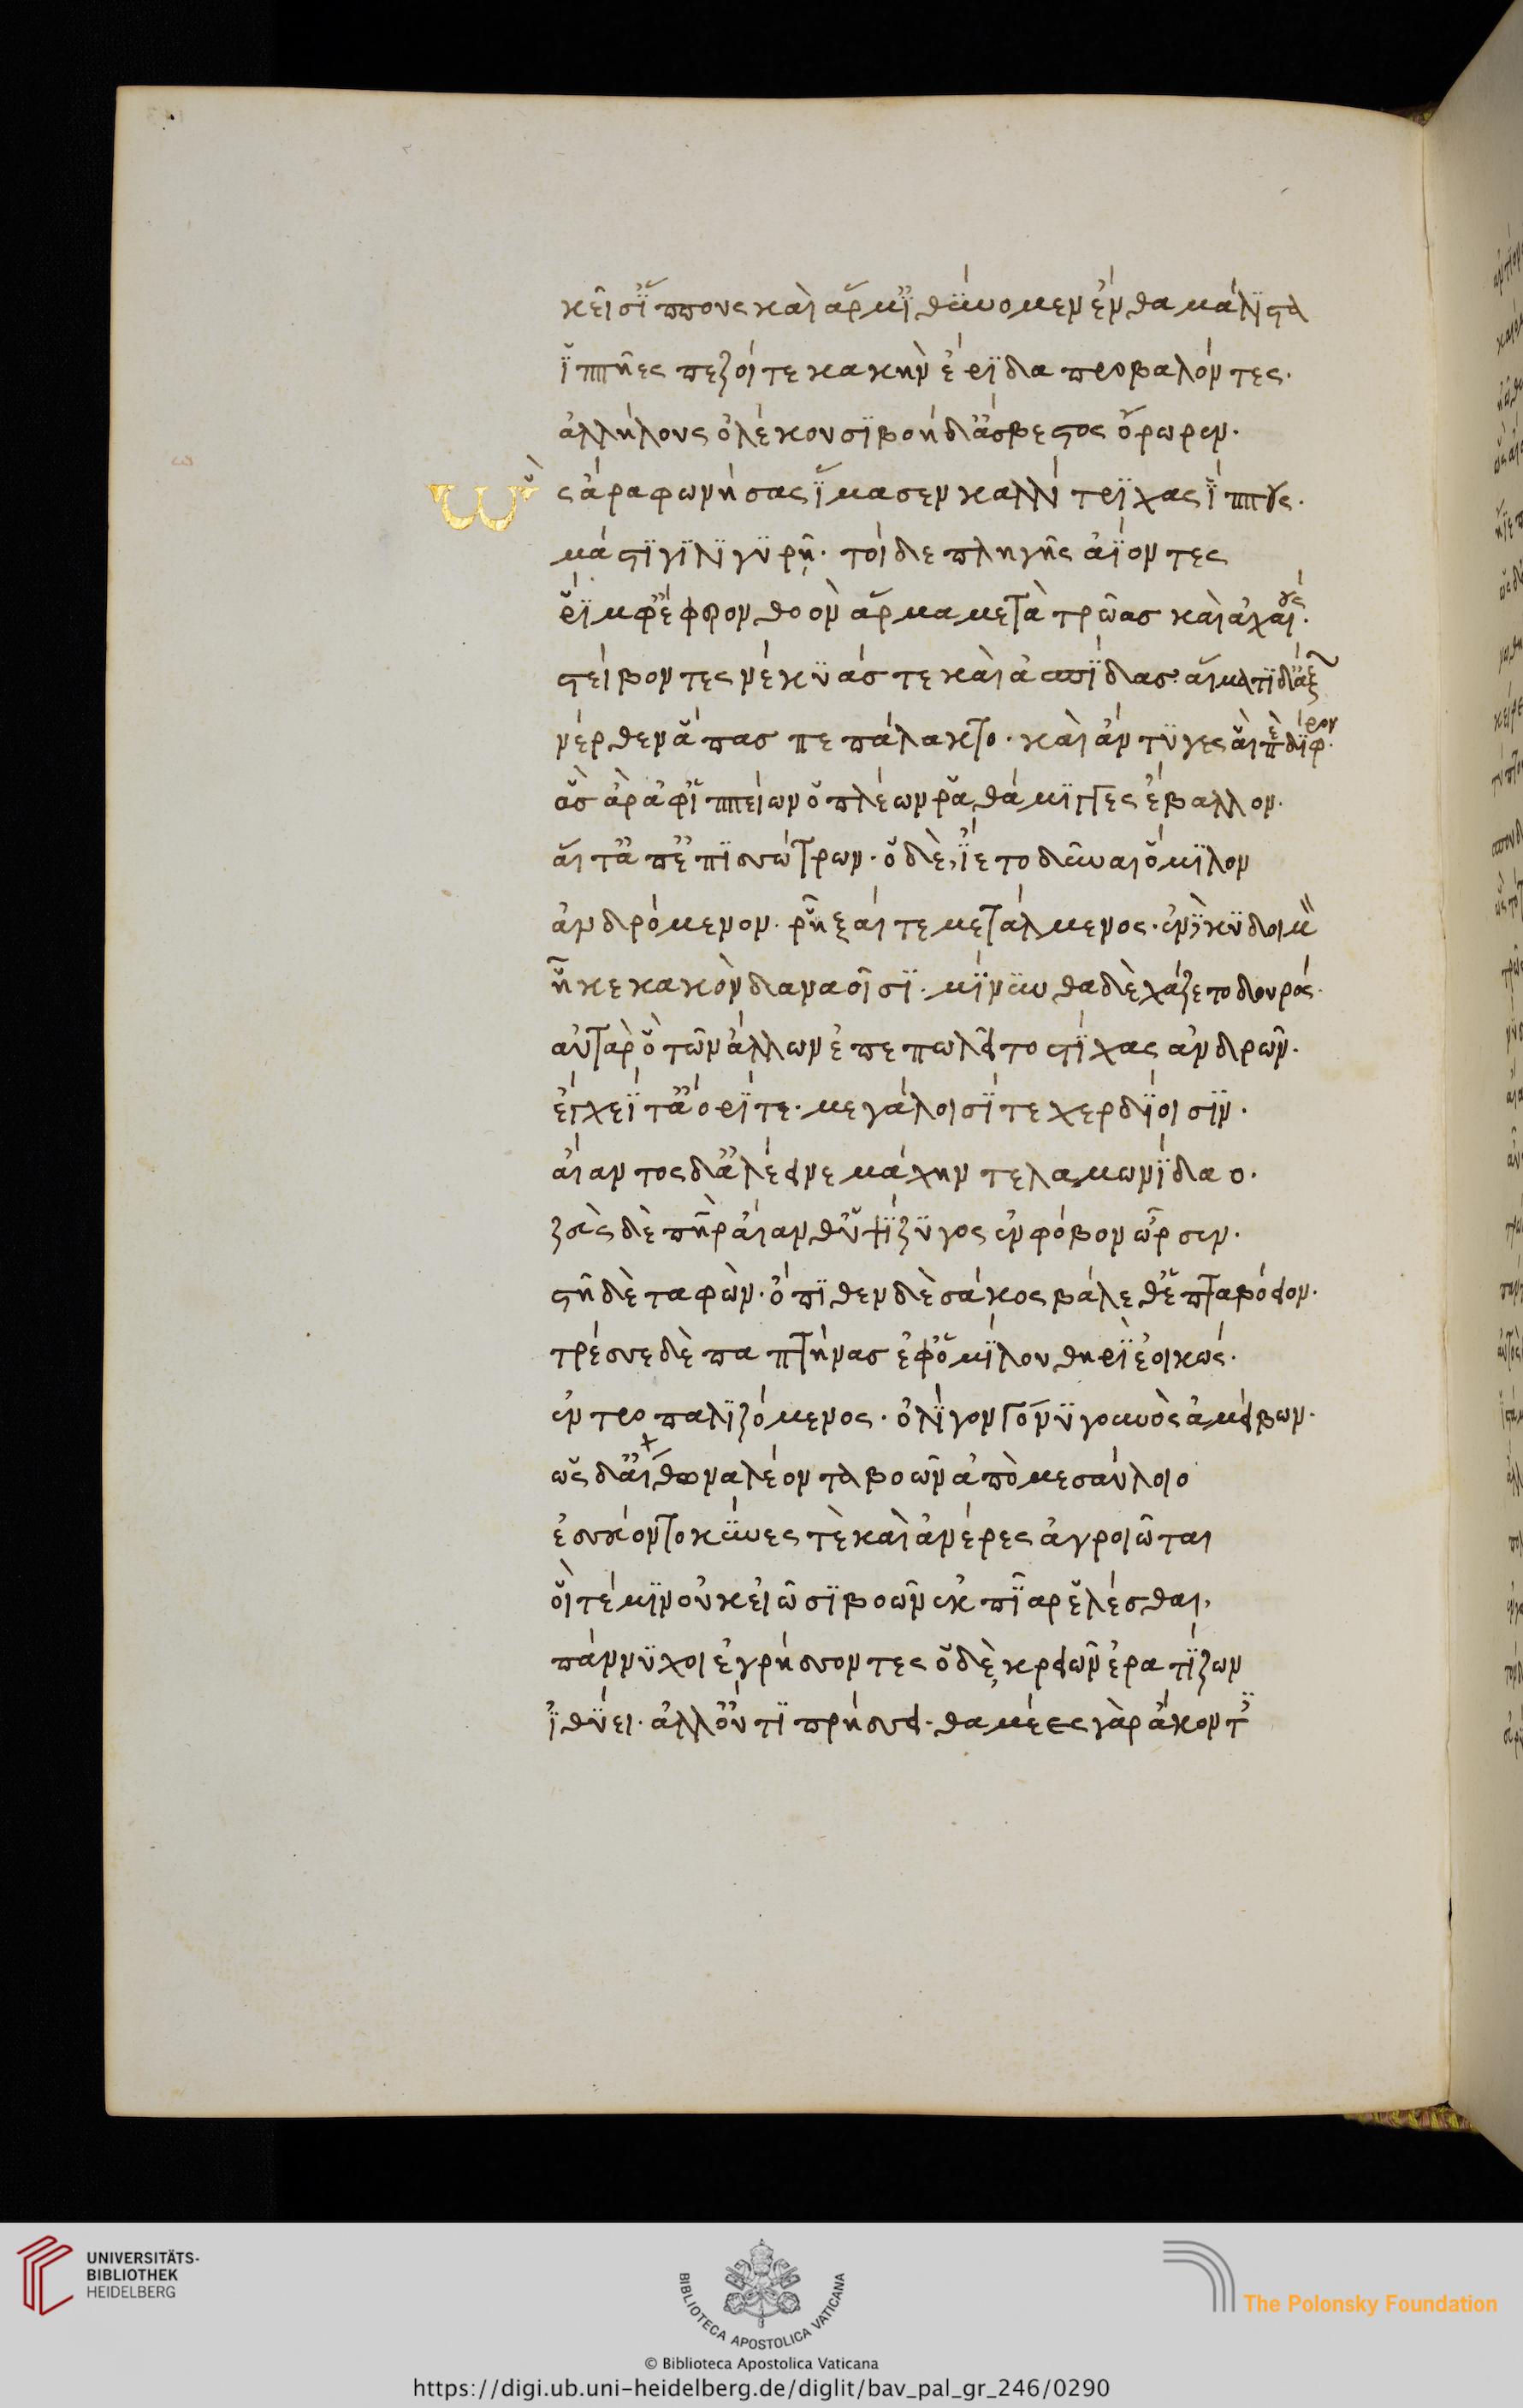 κεῖσ' ἵππους καὶ ἅρμ' ἰθύνομεν ἔνθα μάλιστα
ἱππῆες πεζοί τε κακὴν ἔριδα προβαλόντες.
ἀλλήλους ὀλέκουσι βοὴ δ' ἄσβεστος ὄρωρεν.
Ὣς ἄρα φωνήσας ἵμασεν καλλίτριχας ἵππους.
μάστιγι λιγυρῇ. τοὶ δὲ πληγῆς ἀΐοντες
ῥίμφ' ἔφερον θοὸν ἅρμα μετὰ τρῶας καὶ ἀχαιούς.
στείβοντες νέκυάς τε καὶ ἀσπίδας. αἵματι δ' ἄξων
νέρθεν ἅπας πεπάλακτο. καὶ ἄντυγες αἳ περὶ δίφρον.
ἃς ἄρ' ἀφ' ἱππείων ὁπλέων ῥαθάμιγγες ἔβαλλον.
αἵ τ' ἀπ' ἐπισσώτρων. ὁ δὲ ἵετο δῦναι ὅμιλον
ἀνδρόμενον. ῥῆξαί τε μετάλμενος. ἐν δὲ κυδοιμὸν
ἧκε κακὸν δαναοῖσι. μίνυνθα δὲ χάζετο δουρός.
αὐτὰρ ὁ τῶν ἄλλων ἐπεπωλεῖτο στίχας ἀνδρῶν.
ἔγχεΐ τ' ἄορί τε. μεγάλοισί τε χερδίοισιν.
αἴαντος δ' ἀλέεινε μάχην τελαμωνίδαο.
ζεὺς δὲ πατὴρ αἴανθ' ὑψίζυγος ἐν φόβον ὦρσεν.
στῆ δὲ ταφών. ὄπιθεν δὲ σάκος βάλεθ' ἑπταβόειον.
τρέσσε δὲ παπτήνας ἐφ' ὁμίλου θηρὶ ἐοικώς.
ἐντροπαλιζόμενος. ὀλίγον γόνυ γουνὸς ἀμείβων.
ὡς δ' αἴθωνα λέοντα βοῶν ἀπὸ μεσαύλοιο
ἐσσεύοντο κύνες τὲ καὶ ἀνέρες ἀγροιῶται
οἵ τέ μιν οὐκ εἰῶσι βοῶν ἐκ πῖαρ ἑλέσθαι,
πάννυχοι ἐγρήσσοντες ὁ δὲ κρειῶν ἐρατίζων
ἰθύει. ἀλλ' οὔτι πρήσσει. θαμέες γὰρ ἄκοντες
UNIVERSITÄTS-
BIBLIOTHEK
HEIDELBERG
BIBLIOTECA APOSTOLICA VATICANA
The Polonsky Foundation
© Biblioteca Apostolica Vaticana
https://digi.ub.uni-heidelberg.de/diglit/bav_pal_gr_246/0290